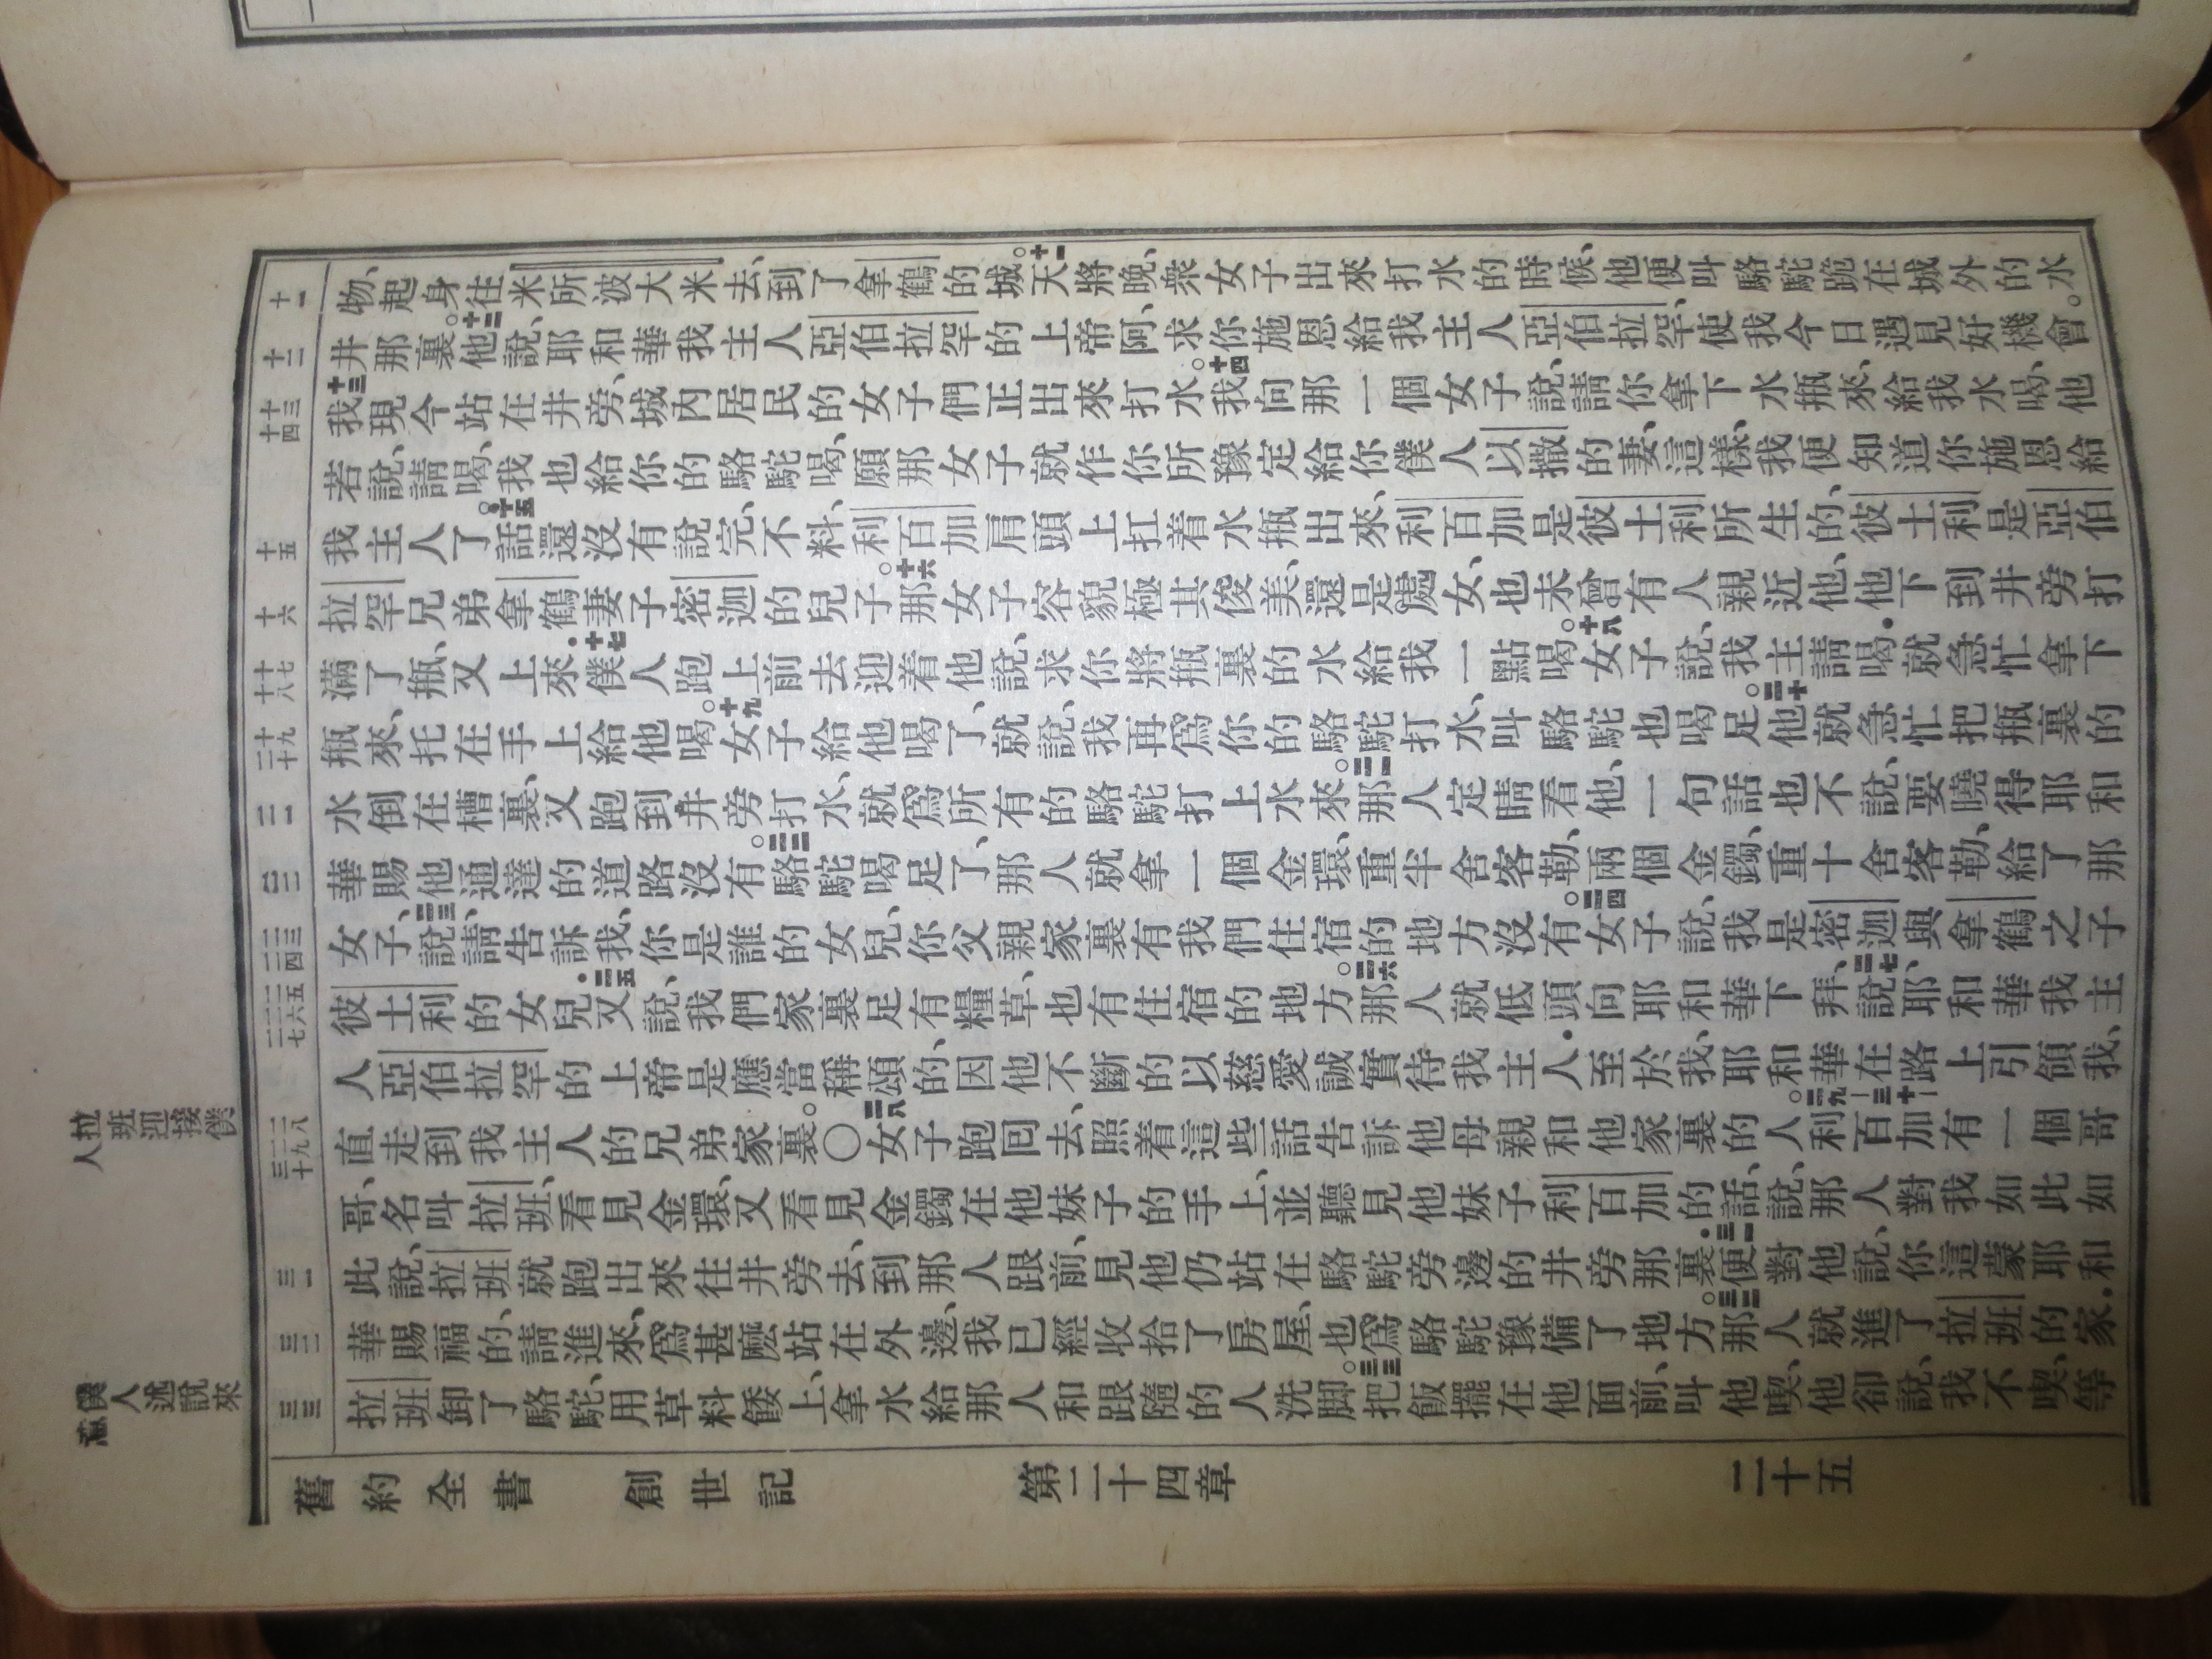 十一
物、起身往米所波大米去、到了拿鶴的城。十一天將晚、衆女子出來打水的時候、他便叫駱駝跪在城外的水
十二
井那裏。十二他說、耶和華我主人亞伯拉罕的上帝阿、求你施恩給我主人亞伯拉罕、使我今日遇見好機會。
十三
十四
十三我現今站在井旁、城內居民的女子們正出來打水。十四我向那一個女子說、請你拿下水瓶來、給我水喝、他
若說、請喝、我也給你的駱駝喝、願那女子就作你所豫定給你僕人以撒的妻、這樣、我便知道你施恩給
十五
我主人了。十五話還沒有說完、不料、利百加肩頭上扛着水瓶出來、利百加是彼土利所生的、彼土利是亞伯
十六
拉罕兄弟拿鶴妻子密迦的兒子。十六那女子容貌極其俊美、還是處女、也未曾有人親近他、他下到井旁打
十七
十八
滿了瓶、又上來．十七僕人跑上前去迎着他說、求你將瓶裏的水給我一點喝。十八女子說、我主請喝．就急忙拿下
十九
二十
瓶來、托在手上給他喝。十九女子給他喝了、就說、我再爲你的駱駝打水、叫駱駝也喝足。二十他就急忙把瓶裏的
二一
水倒在槽裏、又跑到井旁打水、就爲所有的駱駝打上水來。二一那人定睛看他、一句話也不說、要曉得耶和
二二
華賜他通達的道路沒有。二二駱駝喝足了、那人就拿一個金環、重半舍客勒、兩個金鐲、重十舍客勒、給了那
二三
二四
女子、二三說、請告訴我、你是誰的女兒、你父親家裏有我們住宿的地方沒有。二四女子說、我是密迦與拿鶴之子
二五
二六
二七
彼土利的女兒．二五又說、我們家裏足有糧草、也有住宿的地方。二六那人就低頭向耶和華下拜、二七說、耶和華我主
人亞伯拉罕的上帝是應當稱頌的、因他不斷的以慈愛誠實待我主人．至於我、耶和華在路上引領我、
二八
二九
三十
直走到我主人的兄弟家裏。〇二八女子跑回去、照着這些話告訴他母親和他家裏的人。二九—三十利百加有一個哥
哥、名叫拉班、看見金環、又看見金鐲在他妹子的手上、並聽見他妹子利百加的話、說、那人對我如此如
三一
此說、拉班就跑出來往井旁去、到那人跟前、見他仍站在駱駝旁邊的井旁那裏．三一便對他說、你這蒙耶和
三二
華賜福的、請進來、爲甚麽站在外邊、我已經收拾了房屋、也爲駱駝豫備了地方。三二那人就進了拉班的家．
三三
拉班卸了駱駝、用草料餧上、拿水給那人和跟隨的人洗脚。三三把飯擺在他面前、叫他喫、他卻說、我不喫、等
拉班迎接僕
人
僕人述說來
舊約全書　創世記　第二十四章　二十五